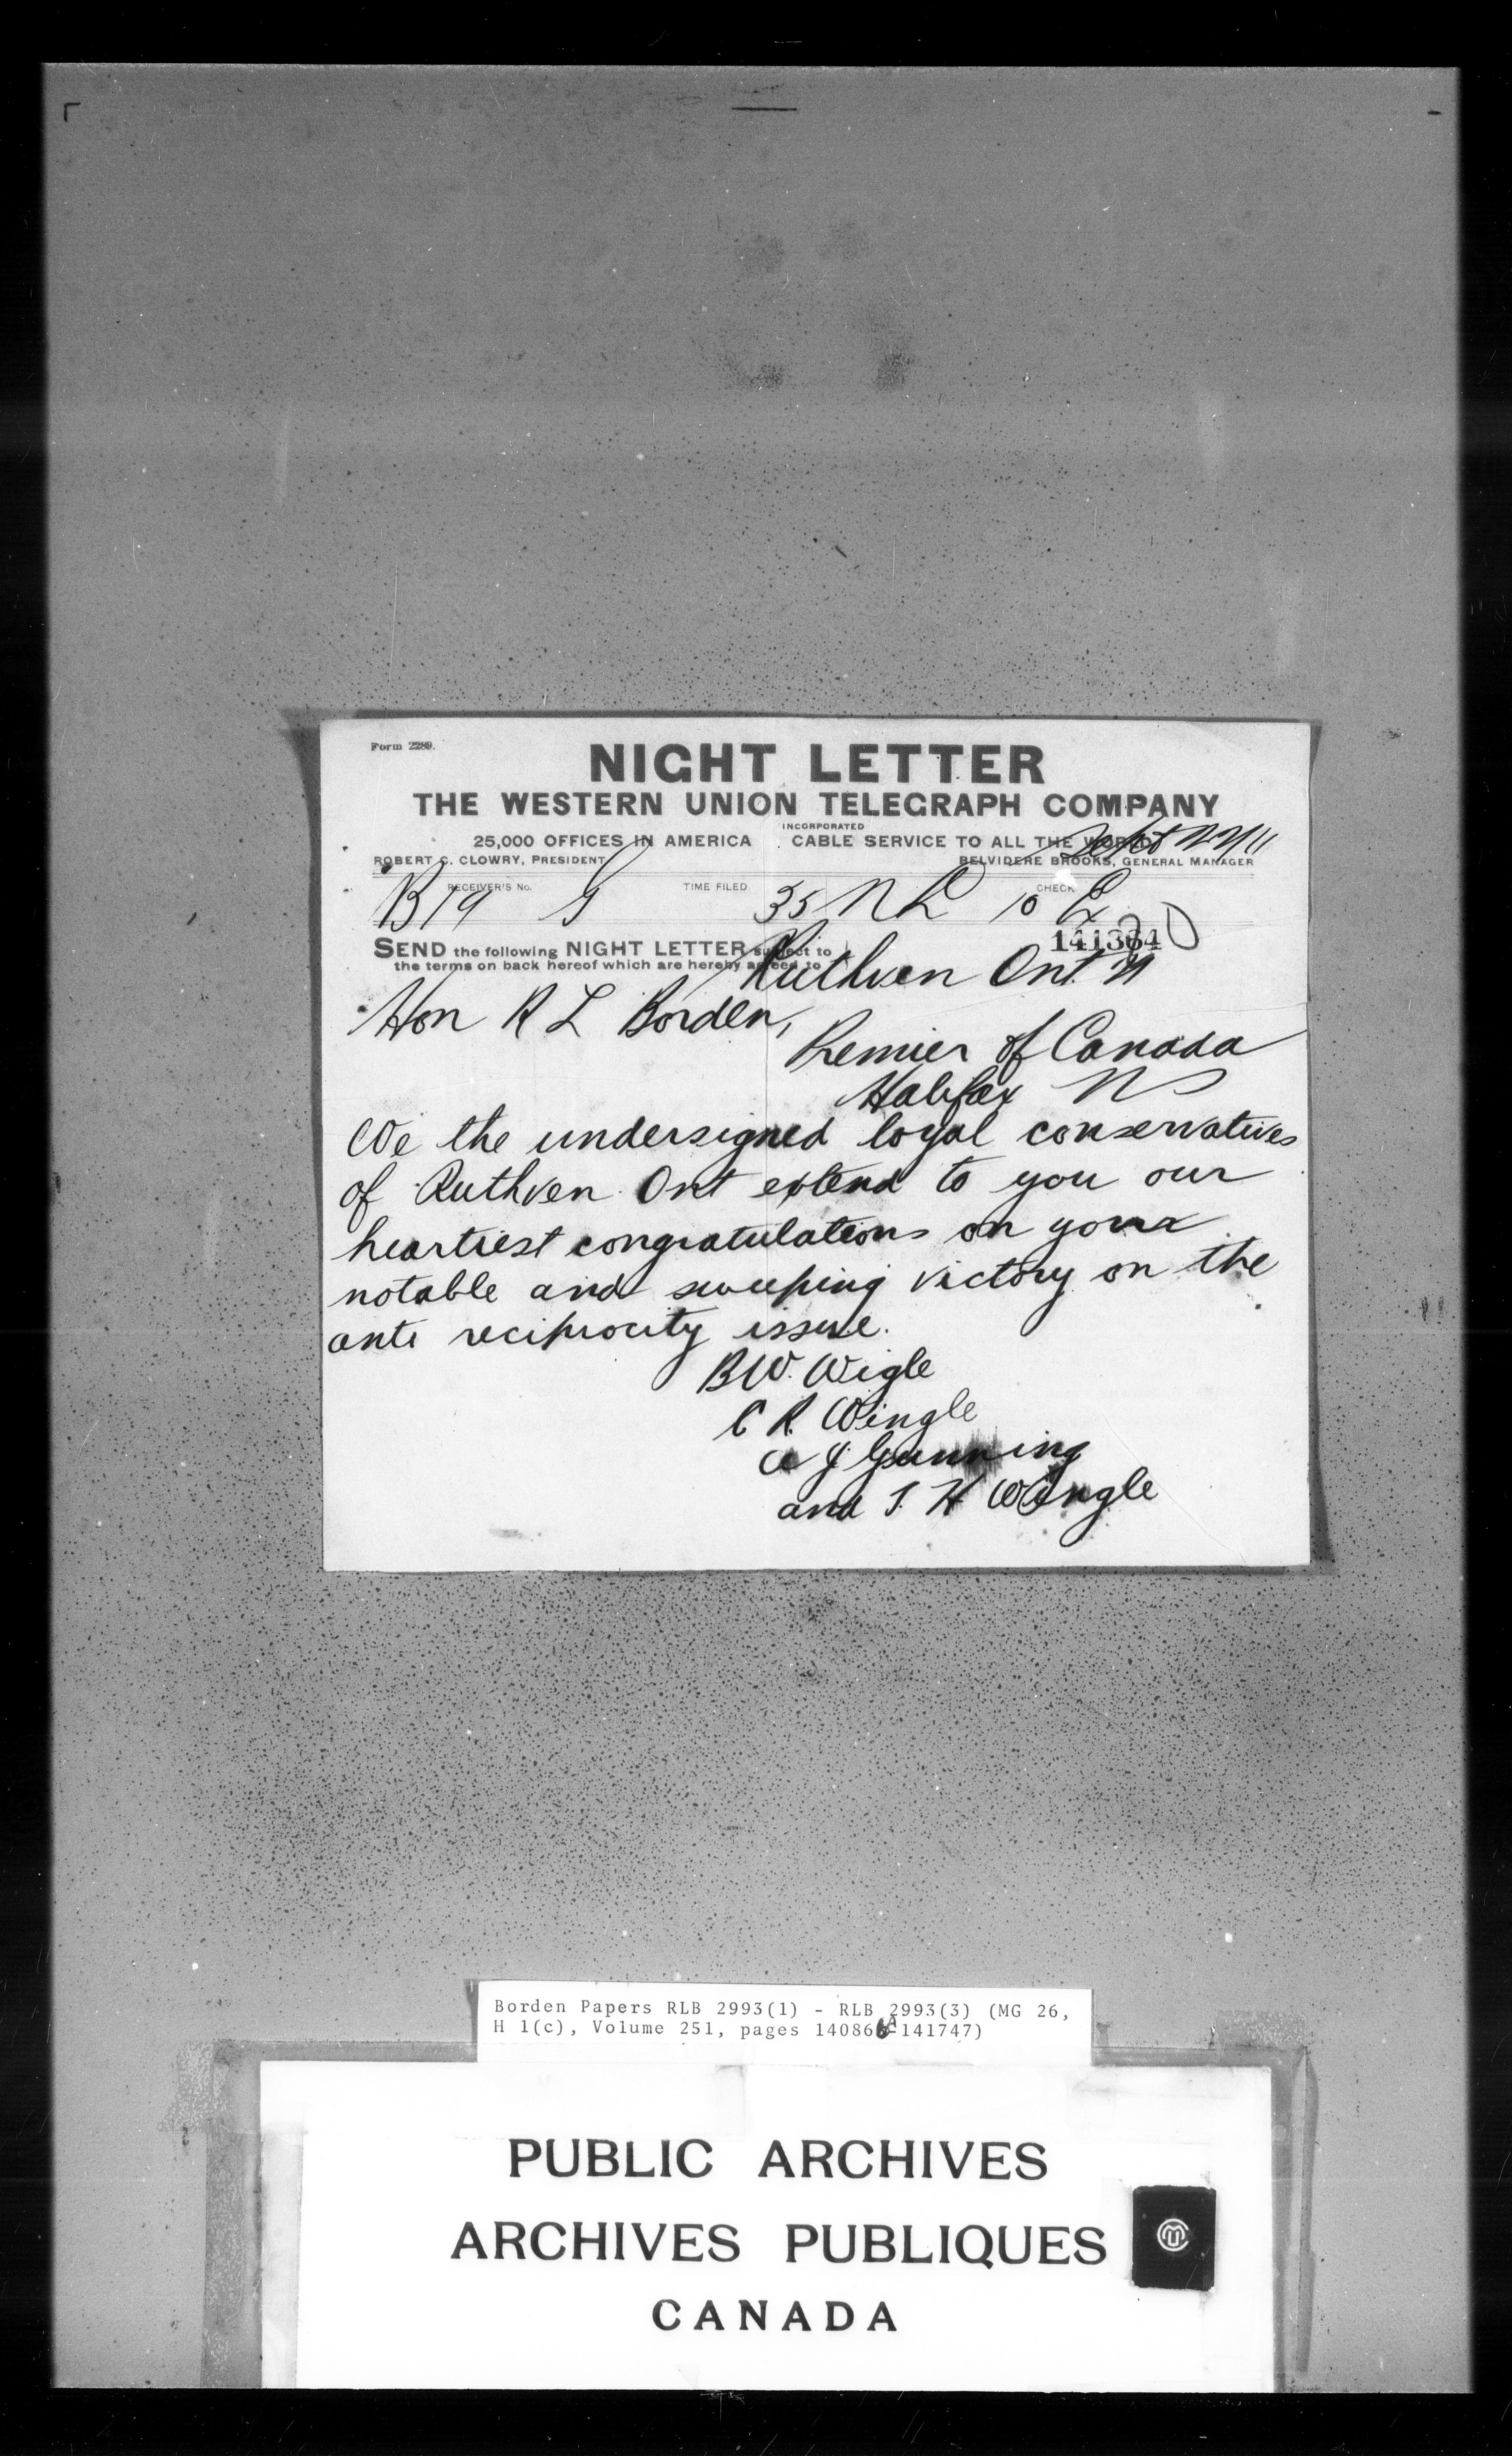 Form 2289.
NIGHT LETTER
THE WESTERN UNION TELEGRAPH COMPANY
INCORPORATED
25,000 OFFICES IN AMERICA CABLE SERVICE TO ALL THE WORLD
Sept 22/11
ROBERT C. CLOWRY, PRESIDENT BELVIDERE BROOKS, GENERAL MANAGER
RECEIVER'S No. TIME FILED CHECK
B19 G 35 NL 10 Ex
141364
SEND the following NIGHT LETTER subject to
the terms on back hereof which are hereby agreed to
Ruthven Ont. 21
Hon R L Borden,
Premier of Canada
Halifax NS
We the undersigned loyal conservatives
of Ruthven Ont extend to you our
heartiest congratulations on your
notable and sweeping victory on the
anti reciprocity issue.
B W. Wigle
C R. Wingle
A J Gunning
and T. H Wingle
Borden Papers RLB 2993(1) - RLB 2993(3) (MG 26,
H 1(c), Volume 251, pages 140866A-141747)
PUBLIC ARCHIVES
ARCHIVES PUBLIQUES
CANADA